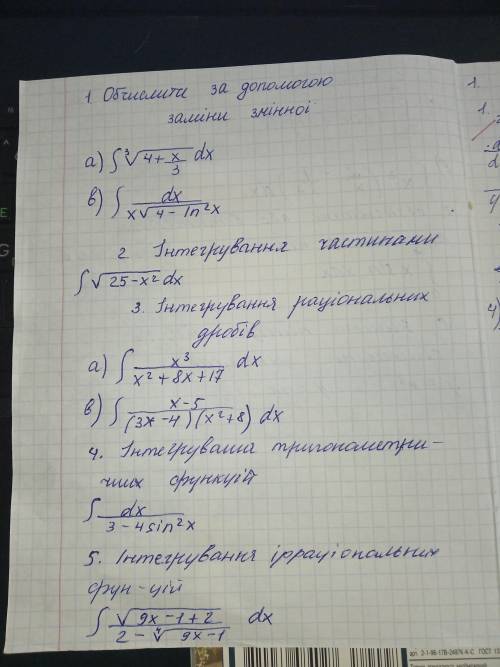 1. Обчислити за допомогою
заміни змінної
а) ∫ ∛(4 + x/3) dx
в) ∫ dx / (x√(4 - ln²x))
2 Інтегрування частинами
∫ √(25 - x²) dx
3. Інтегрування раціональних
дробів
а) ∫ x³ / (x² + 8x + 17) dx
в) ∫ (x - 5) / ((3x - 4)(x² + 8)) dx
4. Інтегрування тригонометри-
чних функцій
∫ dx / (3 - 4sin²x)
5. Інтегрування ірраціональних
фун-цій
∫ √(9x - 1 + 2) / (2 - ∜(9x - 1)) dx
1.
1.
4)
E
G